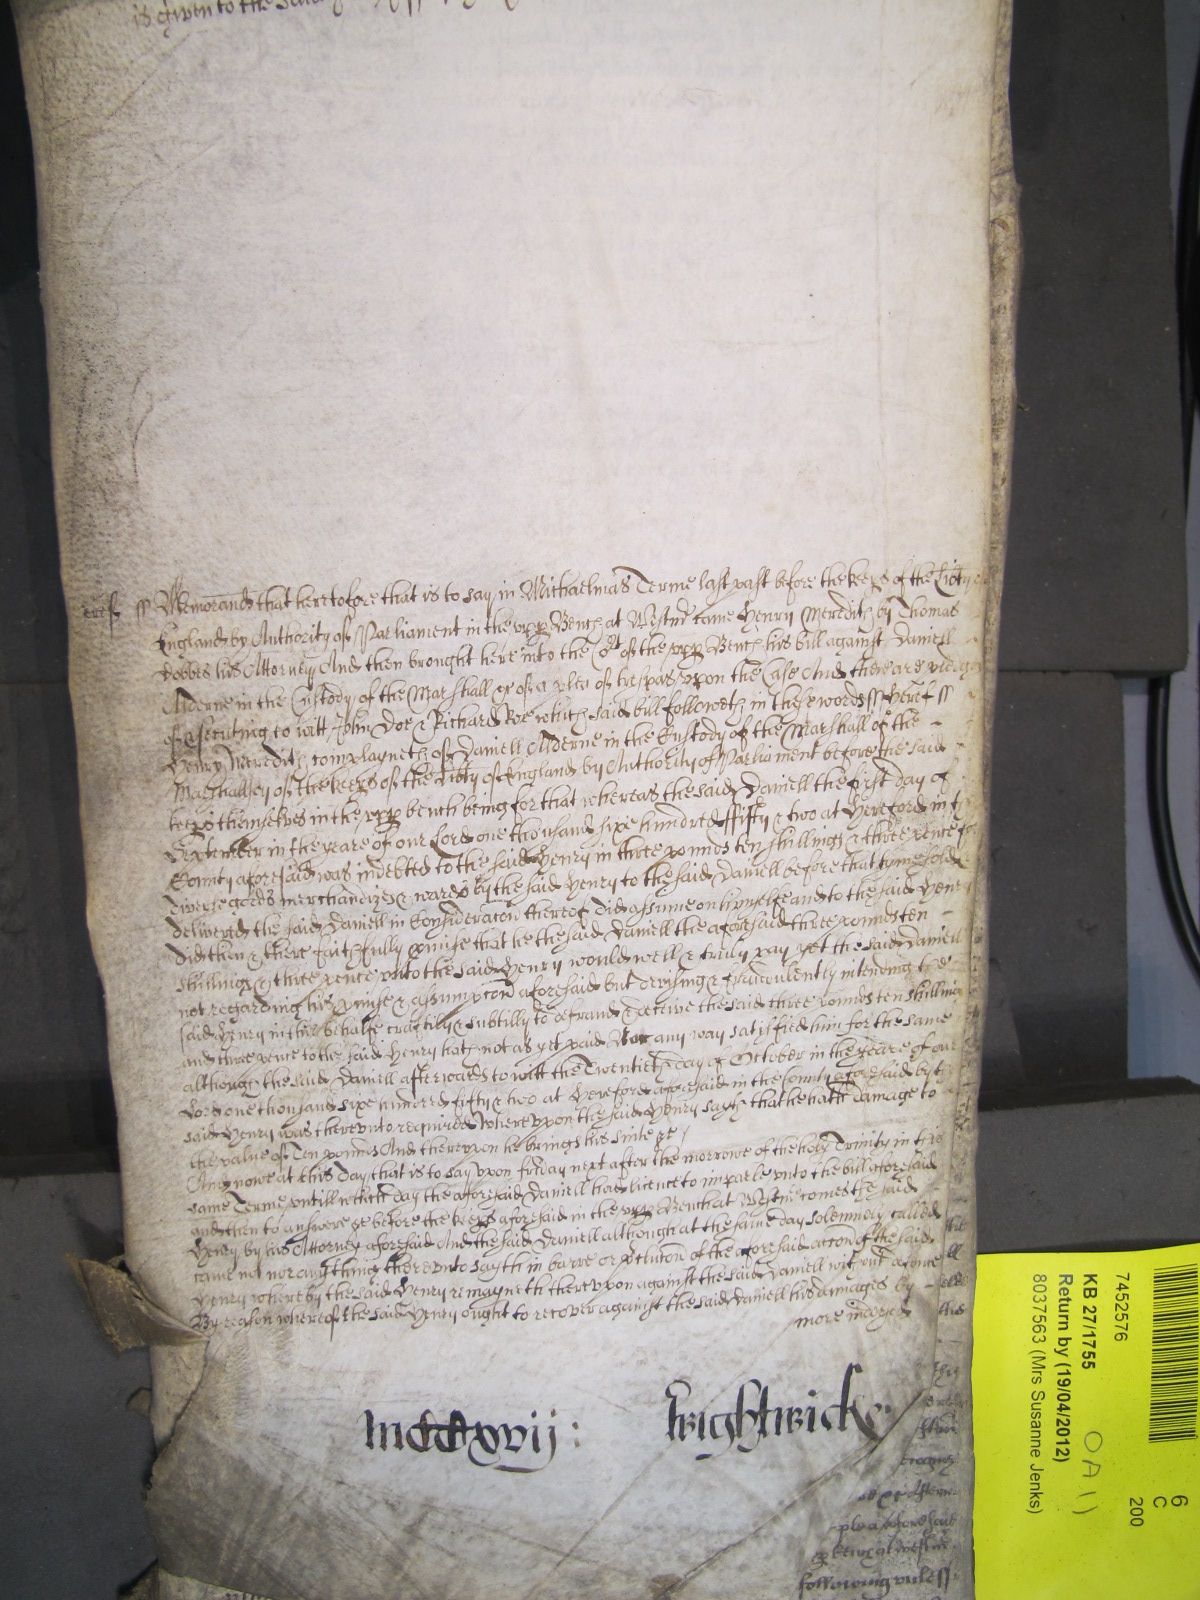 is given to the said
eref ss Memorand that heretofore that is to say in Michaelmas Terme last past before the keeps of the Libty of
England by Authority of Parliament in the upp Bench at Westmr came Henry Meredith by Thomas
Dobbes his Attorney And then brought here into the Cort of the upp Bench his bill against Daniell
Alderne in the Custody of the Marshall &c of a plea of trespas upon the Case And there are pledges
of psecuting to witt John Doe & Richard Roe which said bill followeth in these words ss Heref ss
Henry Meredith complayneth of Daniell Alderne in the Custody of the Marshall of the
Marshallsey of the keeps of the Libty of England by Authority of Parliament before the said
keeps themselves in the upp bench being for that whereas the said Daniell the first day of
September in the yeare of our Lord one thousand sixe hundred fifty & two at Hereford in the
County aforesaid was indebted to the said Henry in three pounds ten shillings & three pence for
diverse goods merchandizes & wares by the said Henry to the said Daniell before that tyme sold &
delivered the said Daniell in Consideracon thereof did assume on himselfe and to the said Henry
did then & there faithfully pmise that he the said Daniell the aforesaid three pounds ten
shillings & three pence unto the said Henry would well & truly pay yet the said Daniell
not regarding his pmise & assumpcon aforesaid but devising & fraudulently intending the
said Henry in this behalfe craftily & subtilly to defraud & deceive the said three pounds ten shillings
and three pence to the said Henry hath not as yet paid Nor any way satisfied him for the same
although the said Daniell afterwards to witt the Twentieth day of October in the yeare of our
Lord one thousand sixe hundred fifty & two at Hereford aforesaid in the County aforesaid by the
said Henry was thereunto required Whereupon the said Henry sayth that he hath damage to
the value of Ten pounds And thereupon he brings his suite &c
And nowe at this day that is to say upon friday next after the morrowe of the holy Trinity in this
same Terme untill which day the aforesaid Daniell had licence to imparle unto the bill aforesaid
and then to answere &c before the keeps aforesaid in the upp Bench at Westmr comes the said
Henry by his Attorney aforesaid And the said Daniell although at the same day solemnely called
came not nor any thing thereunto sayth in barre or pclusion of the aforesaid accon of the said
Henry whereby the said Henry remayneth thereupon against the said Daniell without defence
By reason whereof the said Henry ought to recover against the said Daniell his damages by
more indeyed
mccxvij :
Brightwicke
plea aforesaid
bench at Westmr
following rules ss
7452576
KB 27/1755
Return by (19/04/2012)
8037563 (Mrs Susanne Jenks)
6
C
200